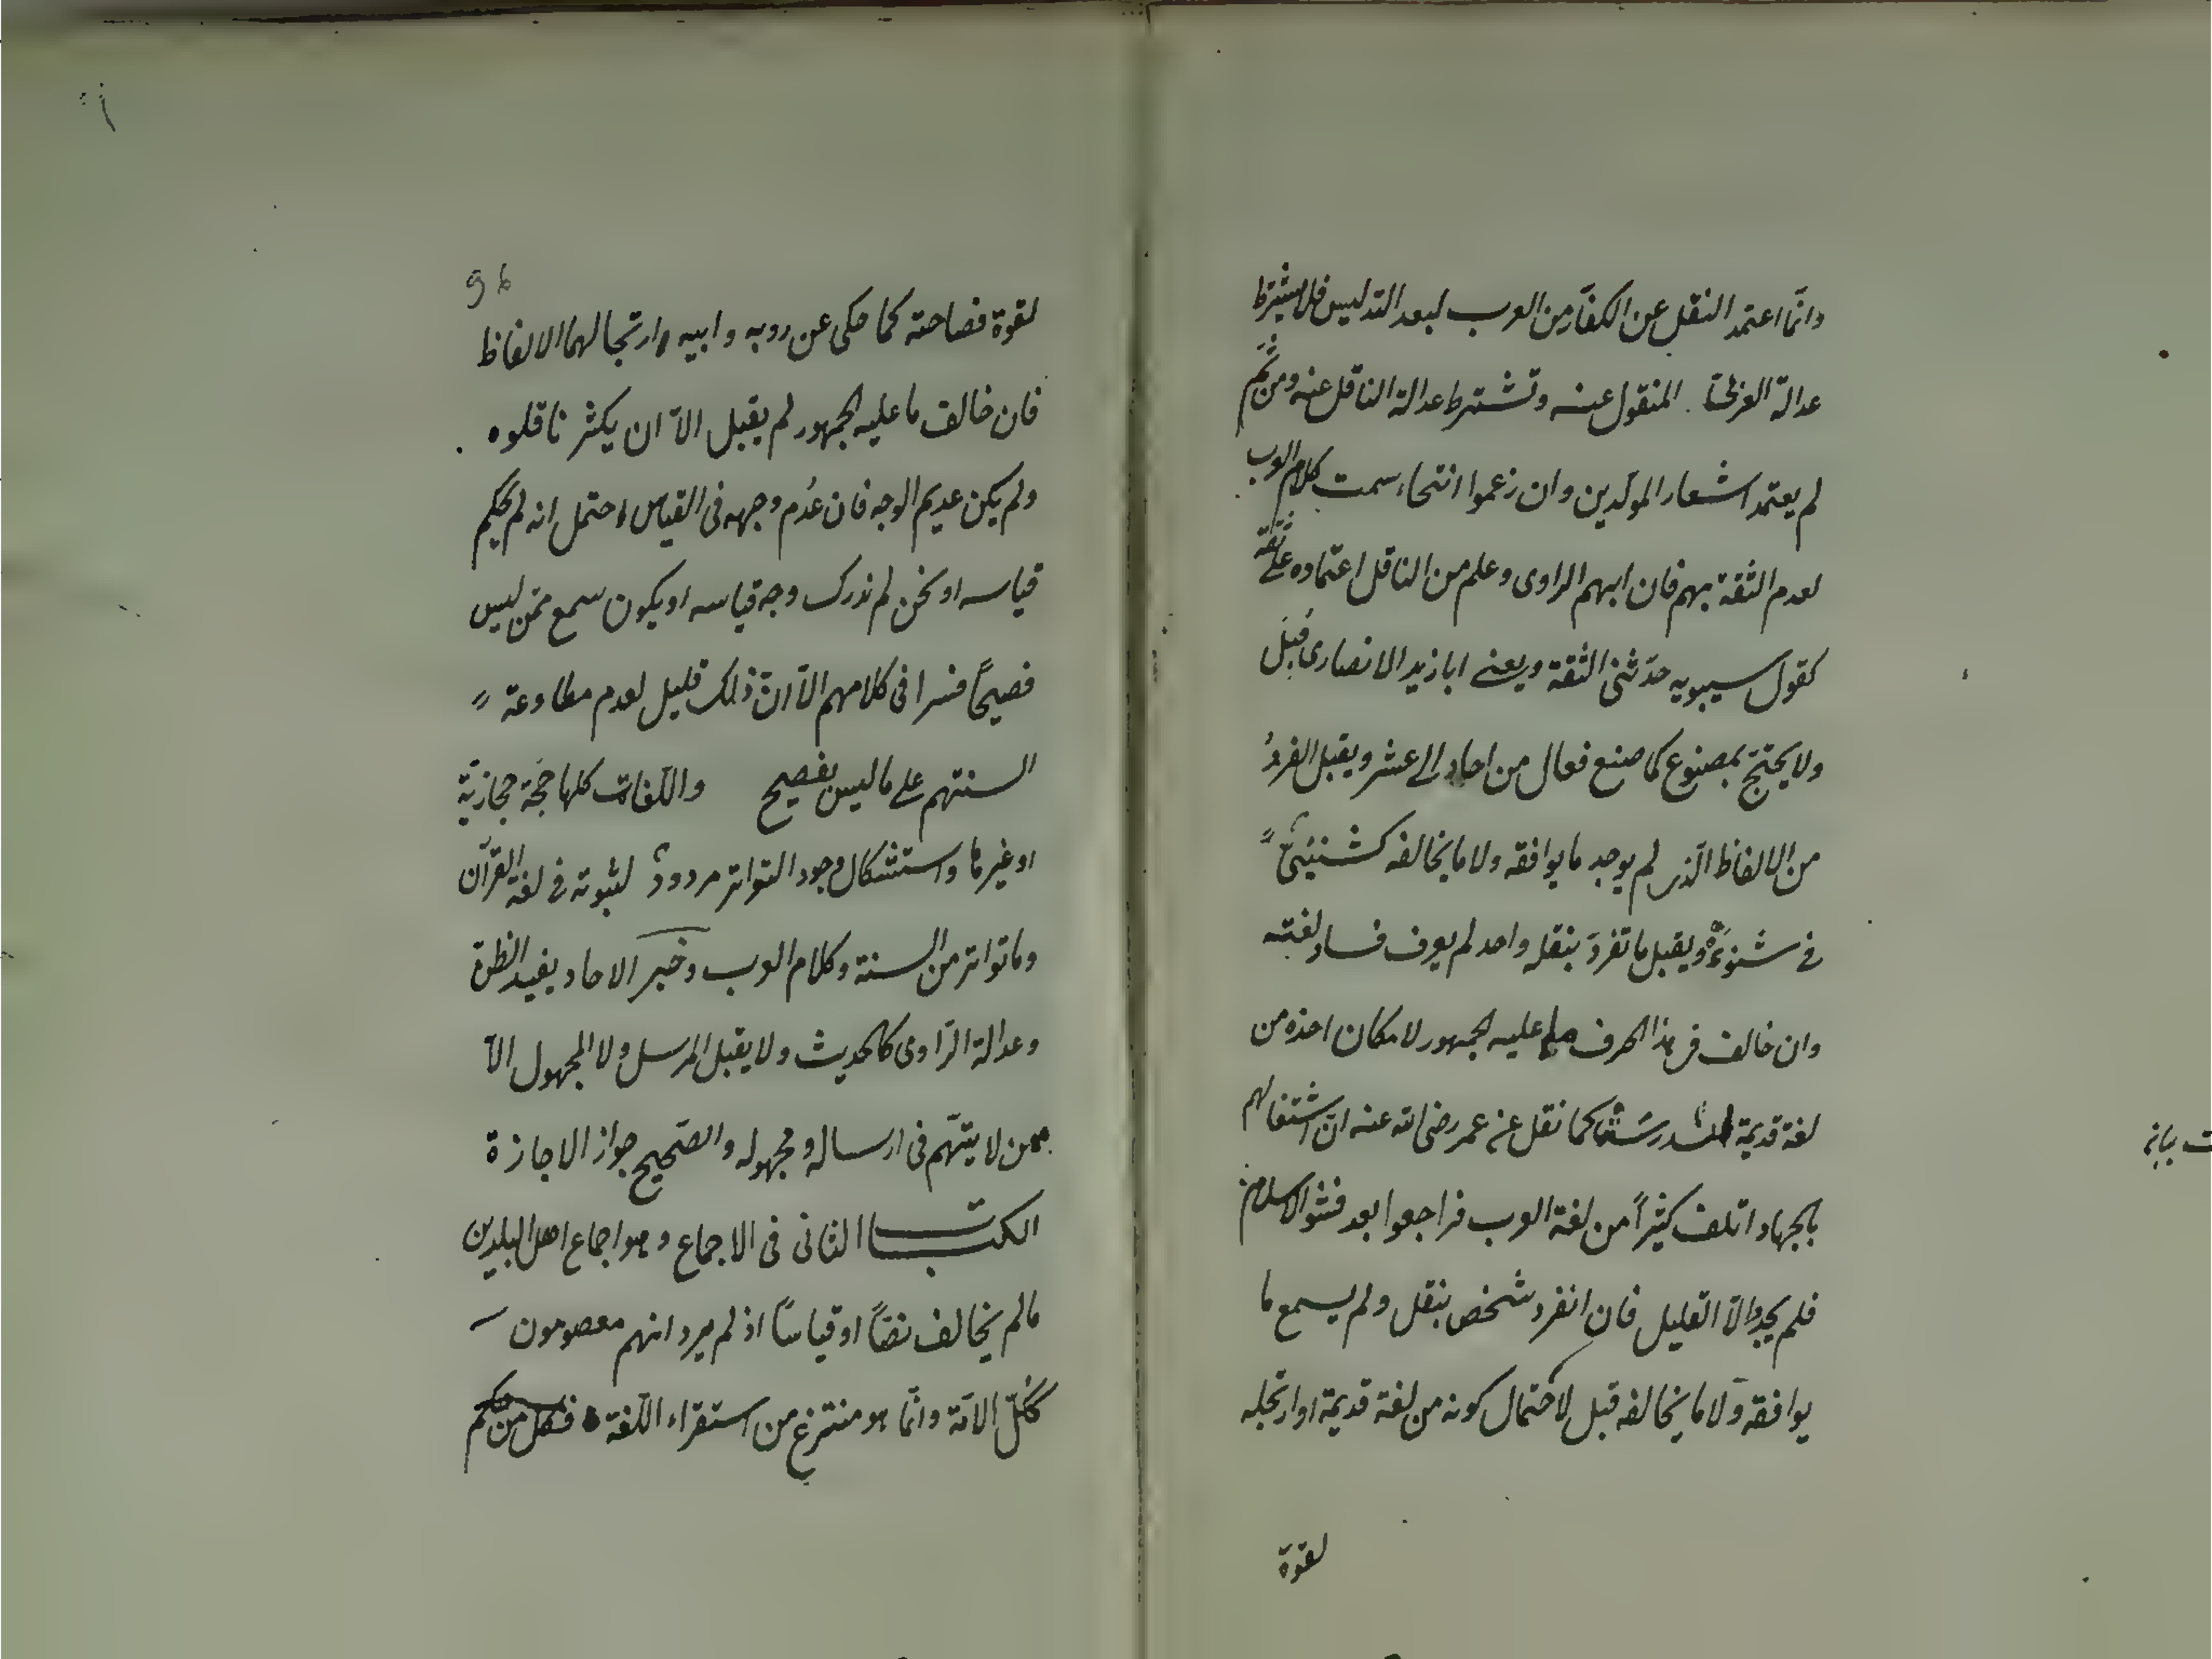 وانّما اعتمد النقل عن الكفّار من العرب لبعد التدليس فلا يشترط
عدالة العربيّ المنقول عنه وتشترط عدالة الناقل عنه ومن ثَمّ
لم يعتمد اشعار المولّدين وان زعموا انتحاء سمت كلام العرب
لعدم الثقة بهم فان ابهم الراوى وعلم من الناقل اعتماده على ثقة
كقول سيبويه حدّثنى الثقة ويعنى ابا زيد الانصارى قُبِلَ
ولا يحتجّ بمصنوع كما صنع فعال من احاد الى عشر ويقبل الفردُ
من الالفاظ الّذى لم يوجد ما يوافقه ولا ما يخالفه كشنئىّ
فى شنوءة ويقبل ما تفرّد بنقله واحد لم يعرف فساد لغته
وان خالف فى هذا الحرف ما عليه الجمهور لامكان اخذه من
لغة قديمة كما نقل عن عمر رضى الله عنه انّ اشتغالهم
بالجهاد اتلف كثيراً من لغة العرب فراجعوا بعد فشو الاسلام
فلم يجدوا الّا القليل فان انفرد شخص بنقل ولم يسمع ما
يوافقه ولا ما يخالفه قبل لاحتمال كونه من لغة قديمة او ارتجله
لقوة
لقوة فصاحته كما حكى عن روبه وابيه وارتجالهما الالفاظ
فان خالف ما عليه الجمهور لم يقبل الّا ان يكثر ناقلوه
ولم يكن عديم الوجه فان عُدم وجهه فى القياس احتمل انه لم يحكم
قياسه او نحن لم ندرك وجه قياسه او يكون سمع ممّن ليس
فصيحاً فسرا فى كلامهم الّا انّ ذلك قليل لعدم مطاوعة
السنتهم على ما ليس بفصيح واللّغات كلها حجّة حجازيّة
او غيرها واستشكال وجود التواتر مردودٌ لثبوته فى لغة القرآن
وما تواتر من السنة وكلام العرب وخبر الاحاد يفيد الظنّ
وعدالة الرّاوى كالحديث ولا يقبل المرسل ولا المجهول الّا
ممن لا يتّهم فى ارساله ومجهوله والصّحيح جواز الاجازة
الكتاب الثانى فى الاجماع وهو اجماع اهل البلدين
ما لم يخالف نصّاً او قياساً اذ لم يرد انهم معصومون
ككُلّ الامّة وانّما هو منتزع من استقراء اللّغة فكل من حكم